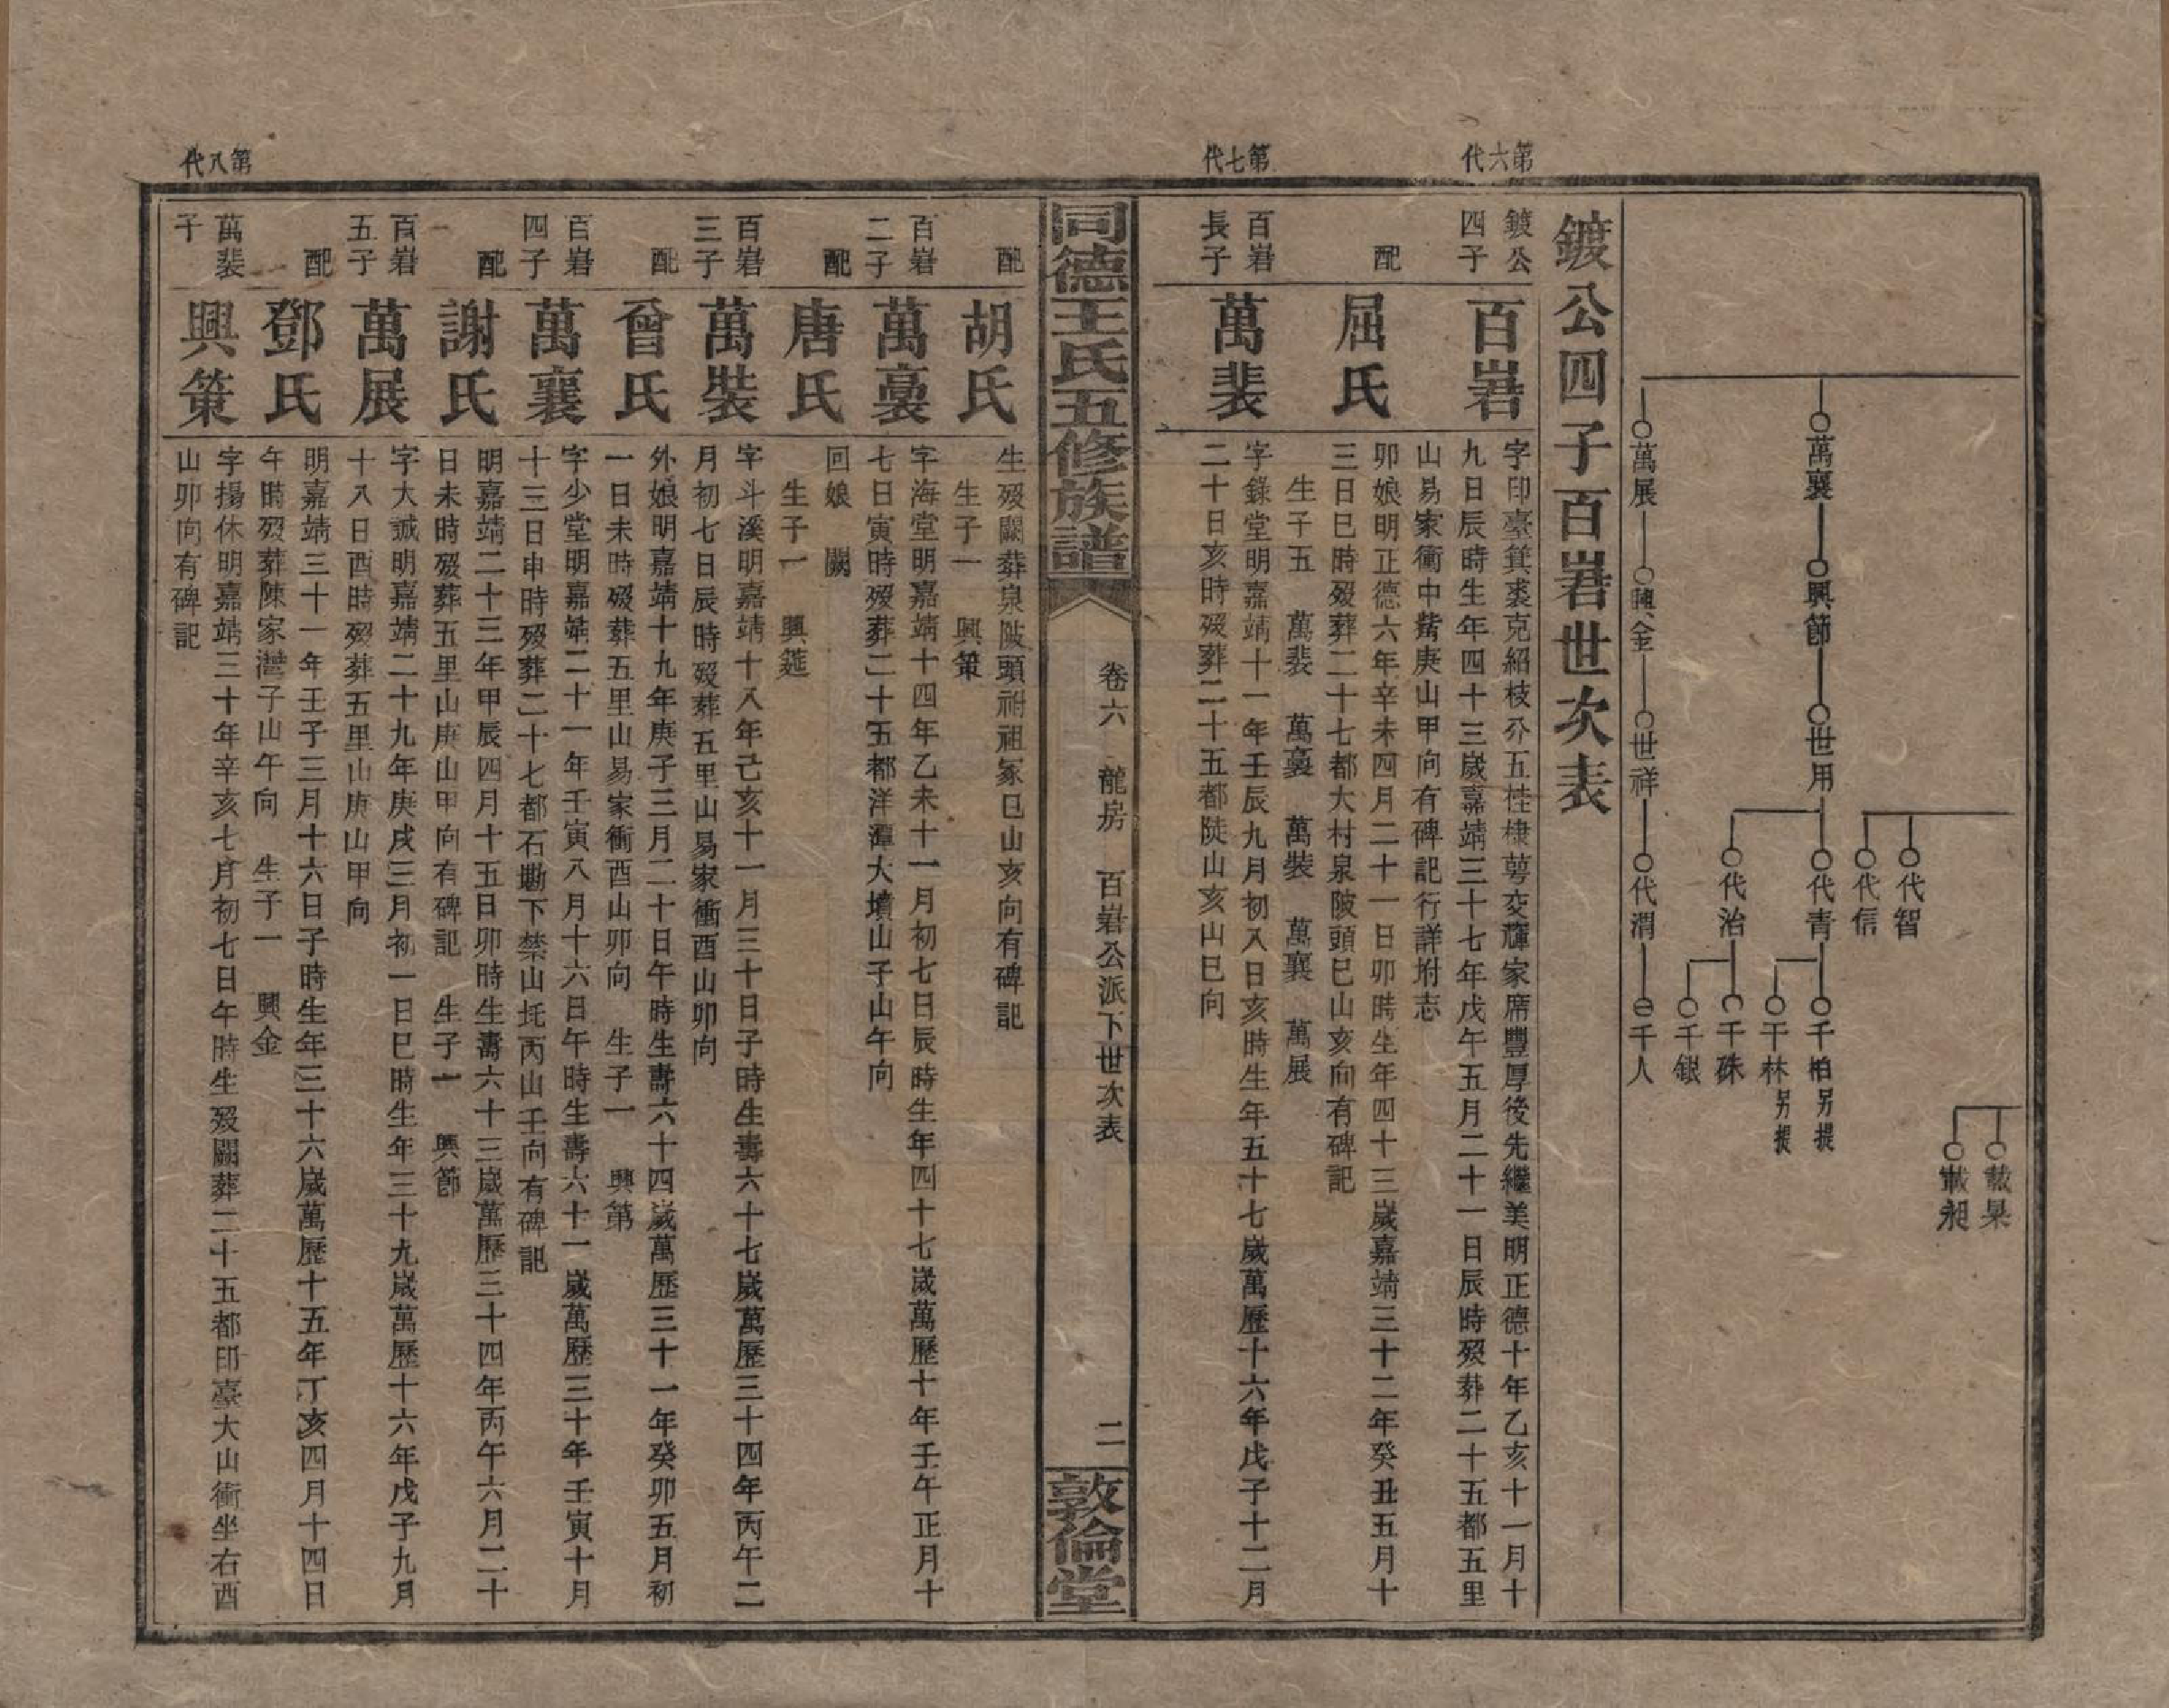 載杲
載昶
代智
代信
萬襄 興節 世用 代青 千柏 另提
千林 另提
代治 千硃
千銀
萬展 興金 世祥 代渭 千人
鍍公四子百峉世次表
第六代
鍍公四子
百峉
字印臺箕裘克紹枝分五桂棣萼交輝家席豐厚後先繼美明正德十年乙亥十一月十
九日辰時生年四十三歲嘉靖三十七年戊午五月二十一日辰時歿葬二十五都五里
山易家衝中觜庚山甲向有碑記行詳坿志
配
屈氏
卯娘明正德六年辛未四月二十一日卯時生年四十三歲嘉靖三十二年癸丑五月十
三日巳時歿葬二十七都大村泉陂頭巳山亥向有碑記
生子五 萬裴 萬裛 萬裝 萬襄 萬展
第七代
百峉長子
萬裴
字錄堂明嘉靖十一年壬辰九月初八日亥時生年五十七歲萬歷十六年戊子十二月
二十日亥時歿葬二十五都陡山亥山巳向
同德王氏五修族譜
卷六 龍房 百峉公派下世次表
二
敦倫堂
配
胡氏
生歿闕葬泉陂頭祔祖冢巳山亥向有碑記
生子一 興策
百峉二子
萬裛
字海堂明嘉靖十四年乙未十一月初七日辰時生年四十七歲萬歷十年壬午正月十
七日寅時歿葬二十五都洋潭大墳山子山午向
配
唐氏
回娘 闕
生子一 興筵
百峉三子
萬裝
字斗溪明嘉靖十八年己亥十一月三十日子時生壽六十七歲萬歷三十四年丙午二
月初七日辰時歿葬五里山易家衝酉山卯向
配
曾氏
外娘明嘉靖十九年庚子三月二十日午時生壽六十四歲萬歷三十一年癸卯五月初
一日未時歿葬五里山易家衝酉山卯向 生子一 興第
百峉四子
萬襄
字少堂明嘉靖二十一年壬寅八月十六日午時生壽六十一歲萬歷三十年壬寅十月
十三日申時歿葬二十七都石墈下禁山坉丙山壬向有碑記
配
謝氏
明嘉靖二十三年甲辰四月十五日卯時生壽六十三歲萬歷三十四年丙午六月二十
日未時歿葬五里山庚山甲向有碑記 生子一 興節
百峉五子
萬展
字大誠明嘉靖二十九年庚戌三月初一日巳時生年三十九歲萬歷十六年戊子九月
十八日酉時歿葬五里山庚山甲向
配
鄧氏
明嘉靖三十一年壬子三月十六日子時生年三十六歲萬歷十五年丁亥四月十四日
午時歿葬陳家灣子山午向 生子一 興金
第八代
萬裴子
興策
字揚休明嘉靖三十年辛亥七月初七日午時生歿闕葬二十五都印臺大山衝坐右酉
山卯向有碑記